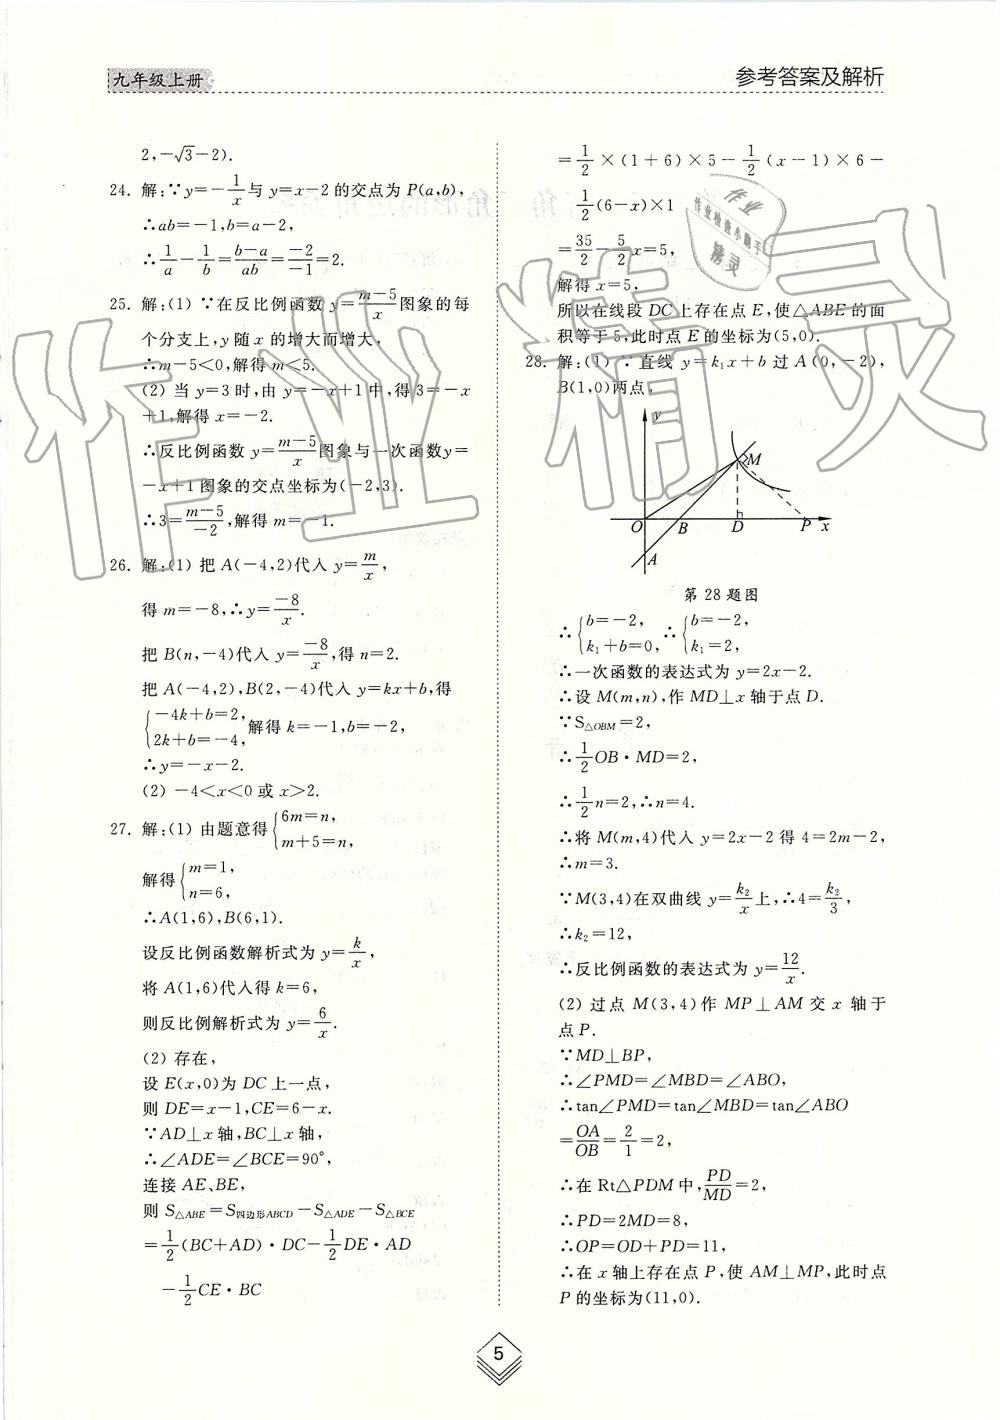 九年级上册
参考答案及解析
2,-√3-2).
24. 解:∵y=-1/x与 y=x-2 的交点为 P(a,b),
∴ab=-1,b=a-2,
∴1/a-1/b=(b-a)/ab=-2/-1=2.
25. 解:(1) ∵在反比例函数 y=(m-5)/x图象的每
个分支上,y 随 x 的增大而增大,
∴m-5<0,解得 m<5.
(2) 当 y=3 时,由 y=-x+1 中,得 3=-x
+1,解得 x=-2.
∴反比例函数 y=(m-5)/x图象与一次函数y=
-x+1 图象的交点坐标为(-2,3).
∴3=(m-5)/-2,解得 m=-1.
26. 解:(1) 把 A(-4,2)代入 y=m/x,
得 m=-8,∴y=-8/x.
把 B(n,-4)代入 y=-8/x,得 n=2.
把 A(-4,2),B(2,-4)代入 y=kx+b,得
{-4k+b=2,
2k+b=-4, 解得 k=-1,b=-2,
∴y=-x-2.
(2) -4<x<0 或 x>2.
27. 解:(1) 由题意得{6m=n,
m+5=n,
解得{m=1,
n=6,
∴A(1,6),B(6,1).
设反比例函数解析式为 y=k/x,
将 A(1,6)代入得 k=6,
则反比例解析式为 y=6/x.
(2) 存在,
设 E(x,0)为 DC 上一点,
则 DE=x-1,CE=6-x.
∵AD⊥x 轴,BC⊥x 轴,
∴∠ADE=∠BCE=90°,
连接 AE、BE,
则 S△ABE=S四边形ABCD-S△ADE-S△BCE
=1/2(BC+AD)·DC-1/2DE·AD
-1/2CE·BC
=1/2×(1+6)×5-1/2(x-1)×6-
1/2(6-x)×1
=35/2-5/2x=5,
解得 x=5,
所以在线段 DC 上存在点 E,使△ABE 的面
积等于 5,此时点 E 的坐标为(5,0).
28. 解:(1) ∵直线 y=k₁x+b 过 A(0,-2),
B(1,0)两点,
y
M
O B D P x
A
第 28 题图
∴{b=-2,
k₁+b=0, ∴{b=-2,
k₁=2,
∴一次函数的表达式为 y=2x-2.
∴设 M(m,n),作 MD⊥x 轴于点 D.
∵S△OBM=2,
∴1/2OB·MD=2,
∴1/2n=2,∴n=4.
∴将 M(m,4)代入 y=2x-2 得 4=2m-2,
∴m=3.
∵M(3,4)在双曲线 y=k₂/x上,∴4=k₂/3,
∴k₂=12,
∴反比例函数的表达式为 y=12/x.
(2) 过点 M(3,4)作 MP⊥AM 交 x 轴于
点 P.
∵MD⊥BP,
∴∠PMD=∠MBD=∠ABO,
∴tan∠PMD=tan∠MBD=tan∠ABO
=OA/OB=2/1=2,
∴在 Rt△PDM 中,PD/MD=2,
∴PD=2MD=8,
∴OP=OD+PD=11,
∴在 x 轴上存在点 P,使 AM⊥MP,此时点
P 的坐标为(11,0).
5
作业精灵
作业
作业检查小助手
精灵